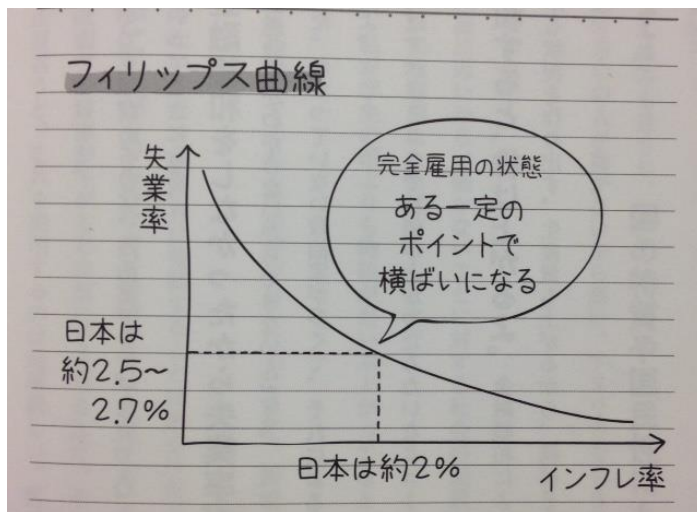 フィリップス曲線
失業率
完全雇用の状態
ある一定の
ポイントで
横ばいになる
日本は
約2.5～
2.7%
日本は約2%
インフレ率